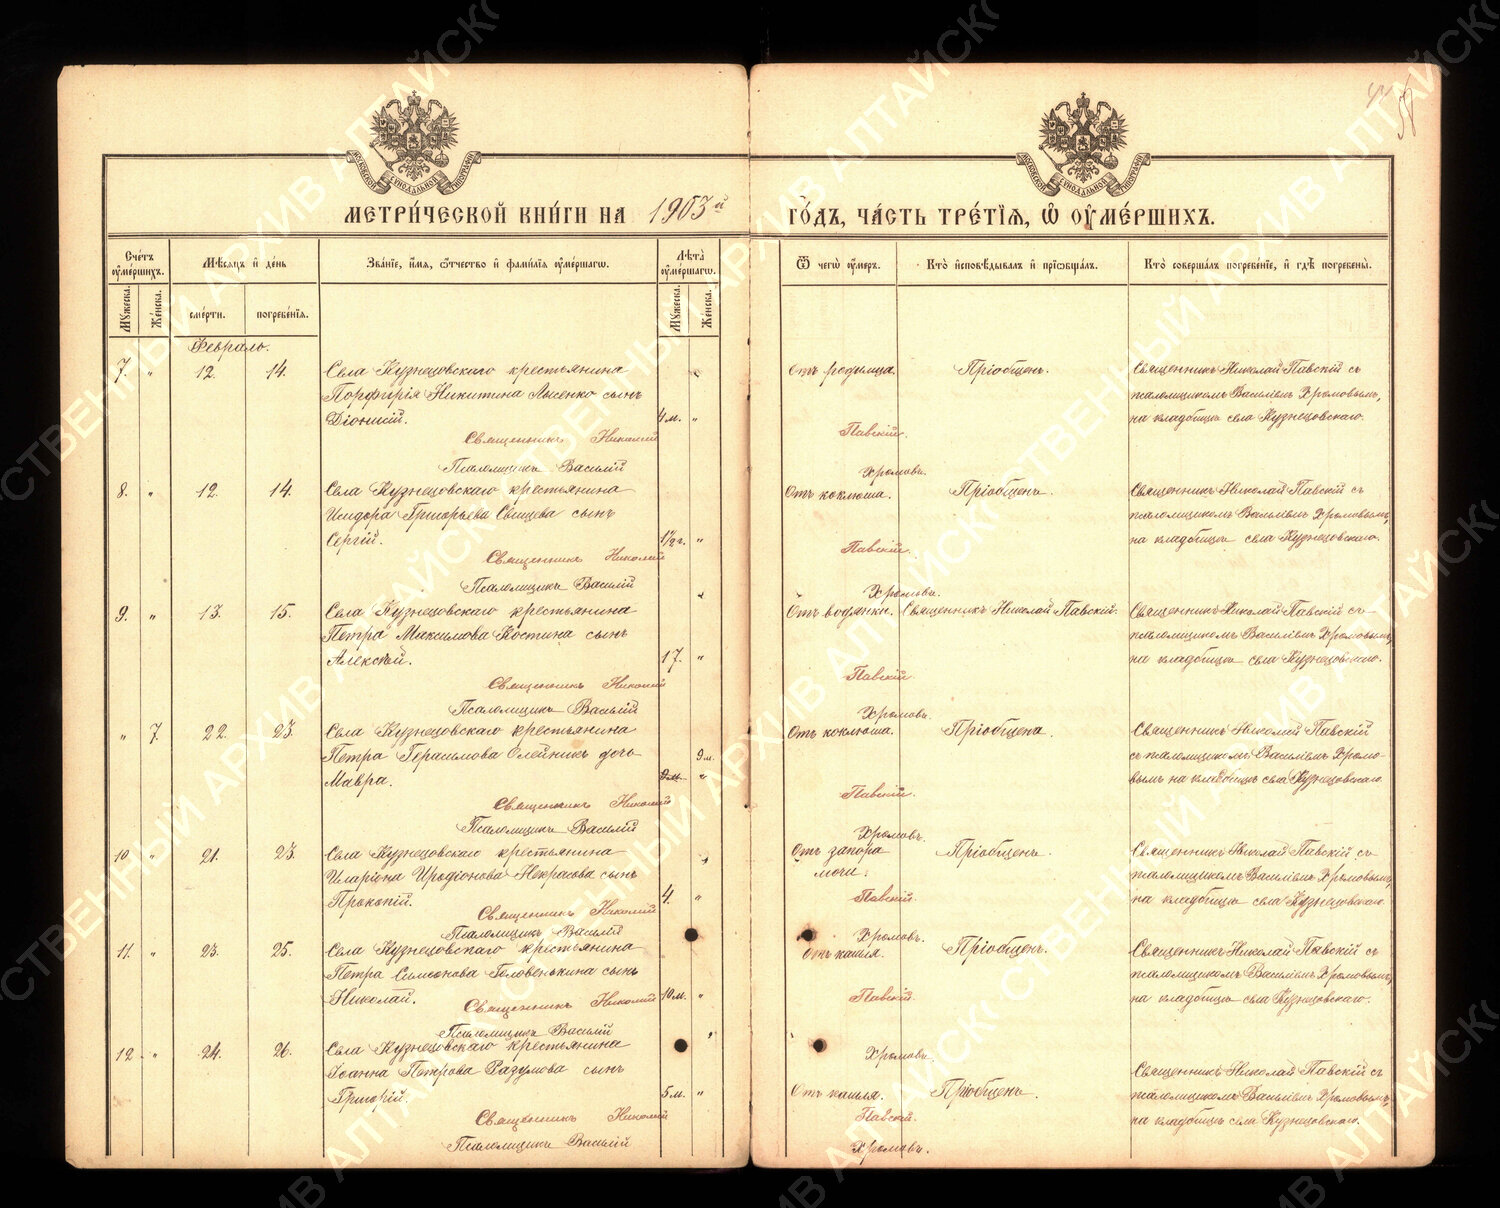 МЕТРИ́ЧЕСКОЙ КНИ́ГИ НА 1903й ГО́ДЪ, ЧА́СТЬ ТРЕ́ТЇѦ, Ѽ ОУМЕ́РШИХЪ.
МОСКОВСКОЙ СѴНОДАЛЬНОЙ ТИПОГРАФІИ
МОСКОВСКОЙ СѴНОДАЛЬНОЙ ТИПОГРАФІИ
Сче́тъ оуме́ршихъ.
Мужеска.
Женска.
Мѣсяцъ и де́нь
сме́рти.
погребе́нїя.
Зва́нїе, и́мя, ѻтчество и фами́лїя оуме́ршагѡ.
Лѣта оуме́ршагѡ.
Мужеска.
Женска.
Ѿ чегѡ оумеръ.
Кто̀ и҆сповѣ́дывалъ и҆ прїѡбща́лъ.
Кто̀ соверша́лъ погребе́нїе, и҆ гдѣ̀ погребены̀.
Февраль.
7. " 12. 14. Села Кузнецовскаго крестьянина
Порфирія Никитина Лысенко сынъ
Діонисій. 4 м. "
Отъ родимца. Пріобщенъ. Священникъ Николай Павскій съ
псаломщикомъ Василіемъ Хромовымъ,
на кладбищѣ села Кузнецовскаго.
Священникъ Николай Павскій.
Псаломщикъ Василій Хромовъ.
8. " 12. 14. Села Кузнецовскаго крестьянина
Исидора Григорьева сынъ
Сергій. 1½ г. "
Отъ коклюша. Пріобщенъ. Священникъ Николай Павскій съ
псаломщикомъ Василіемъ Хромовымъ,
на кладбищѣ села Кузнецовскаго.
Священникъ Николай Павскій.
Псаломщикъ Василій Хромовъ.
9. " 13. 15. Села Кузнецовскаго крестьянина
Петра Максимова Костина сынъ
Алексѣй. 17. "
Отъ водянки. Священникъ Николай Павскій. Священникъ Николай Павскій съ
псаломщикомъ Василіемъ Хромовымъ,
на кладбищѣ села Кузнецовскаго.
Священникъ Николай Павскій.
Псаломщикъ Василій Хромовъ.
" 7. 22. 23. Села Кузнецовскаго крестьянина
Петра Герасимова Олейникъ дочь 9 м.
Мавра. 9 м. "
Отъ коклюша. Пріобщена. Священникъ Николай Павскій
съ псаломщикомъ Василіемъ Хромо-
вымъ на кладбищѣ села Кузнецовскаго
Священникъ Николай Павскій.
Псаломщикъ Василій Хромовъ.
10 " 21. 23. Села Кузнецовскаго крестьянина
Иларіона Иродіонова Некрасова сынъ
Прокопій. 4. "
Отъ запора
мочи. Пріобщенъ. Священникъ Николай Павскій съ
псаломщикомъ Василіемъ Хромовымъ,
на кладбищѣ села Кузнецовскаго.
Священникъ Николай Павскій.
Псаломщикъ Василій Хромовъ.
11. " 23. 25. Села Кузнецовскаго крестьянина
Петра Симеонова Головенькина сынъ
Николай. 10 м. "
Отъ кашля. Пріобщенъ. Священникъ Николай Павскій съ
псаломщикомъ Василіемъ Хромовымъ,
на кладбищѣ села Кузнецовскаго.
Священникъ Николай Павскій.
Псаломщикъ Василій Хромовъ.
12 " 24. 26. Села Кузнецовскаго крестьянина
Іоанна Петрова Разумова сынъ
Григорій. 5 м. "
Отъ кашля. Пріобщенъ. Священникъ Николай Павскій съ
псаломщикомъ Василіемъ Хромовымъ,
на кладбищѣ села Кузнецовскаго.
Священникъ Николай Павскій.
Псаломщикъ Василій Хромовъ.